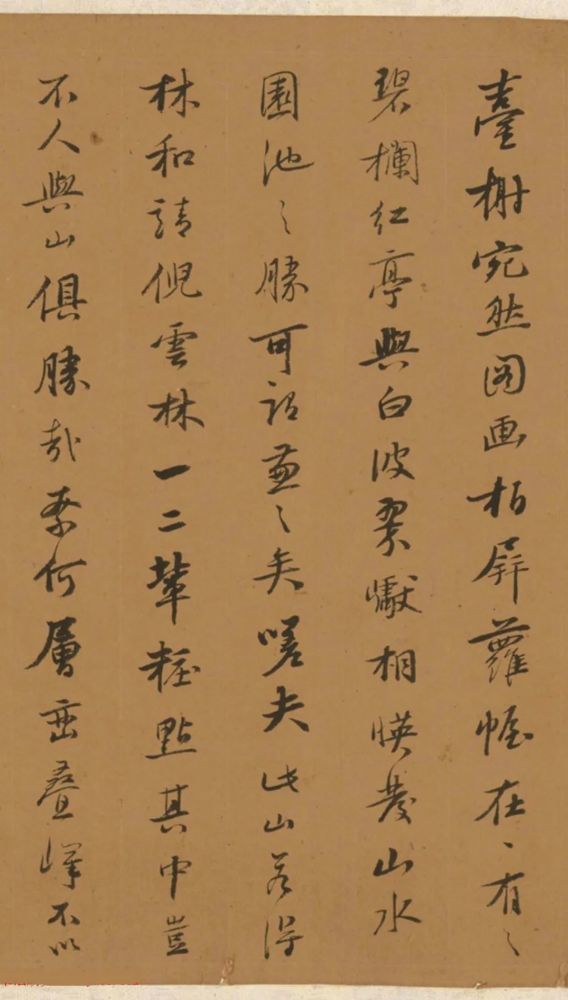 臺榭宛然圖画柏屏蘿幄在〻有〻
碧欄紅亭與白波翠巘相暎發山水
園池之勝可謂兼之矣嗟夫此山若得
林和靖倪雲林一二輩粧點其中豈
不人與山俱勝哉奈何層巒疊嶂不以